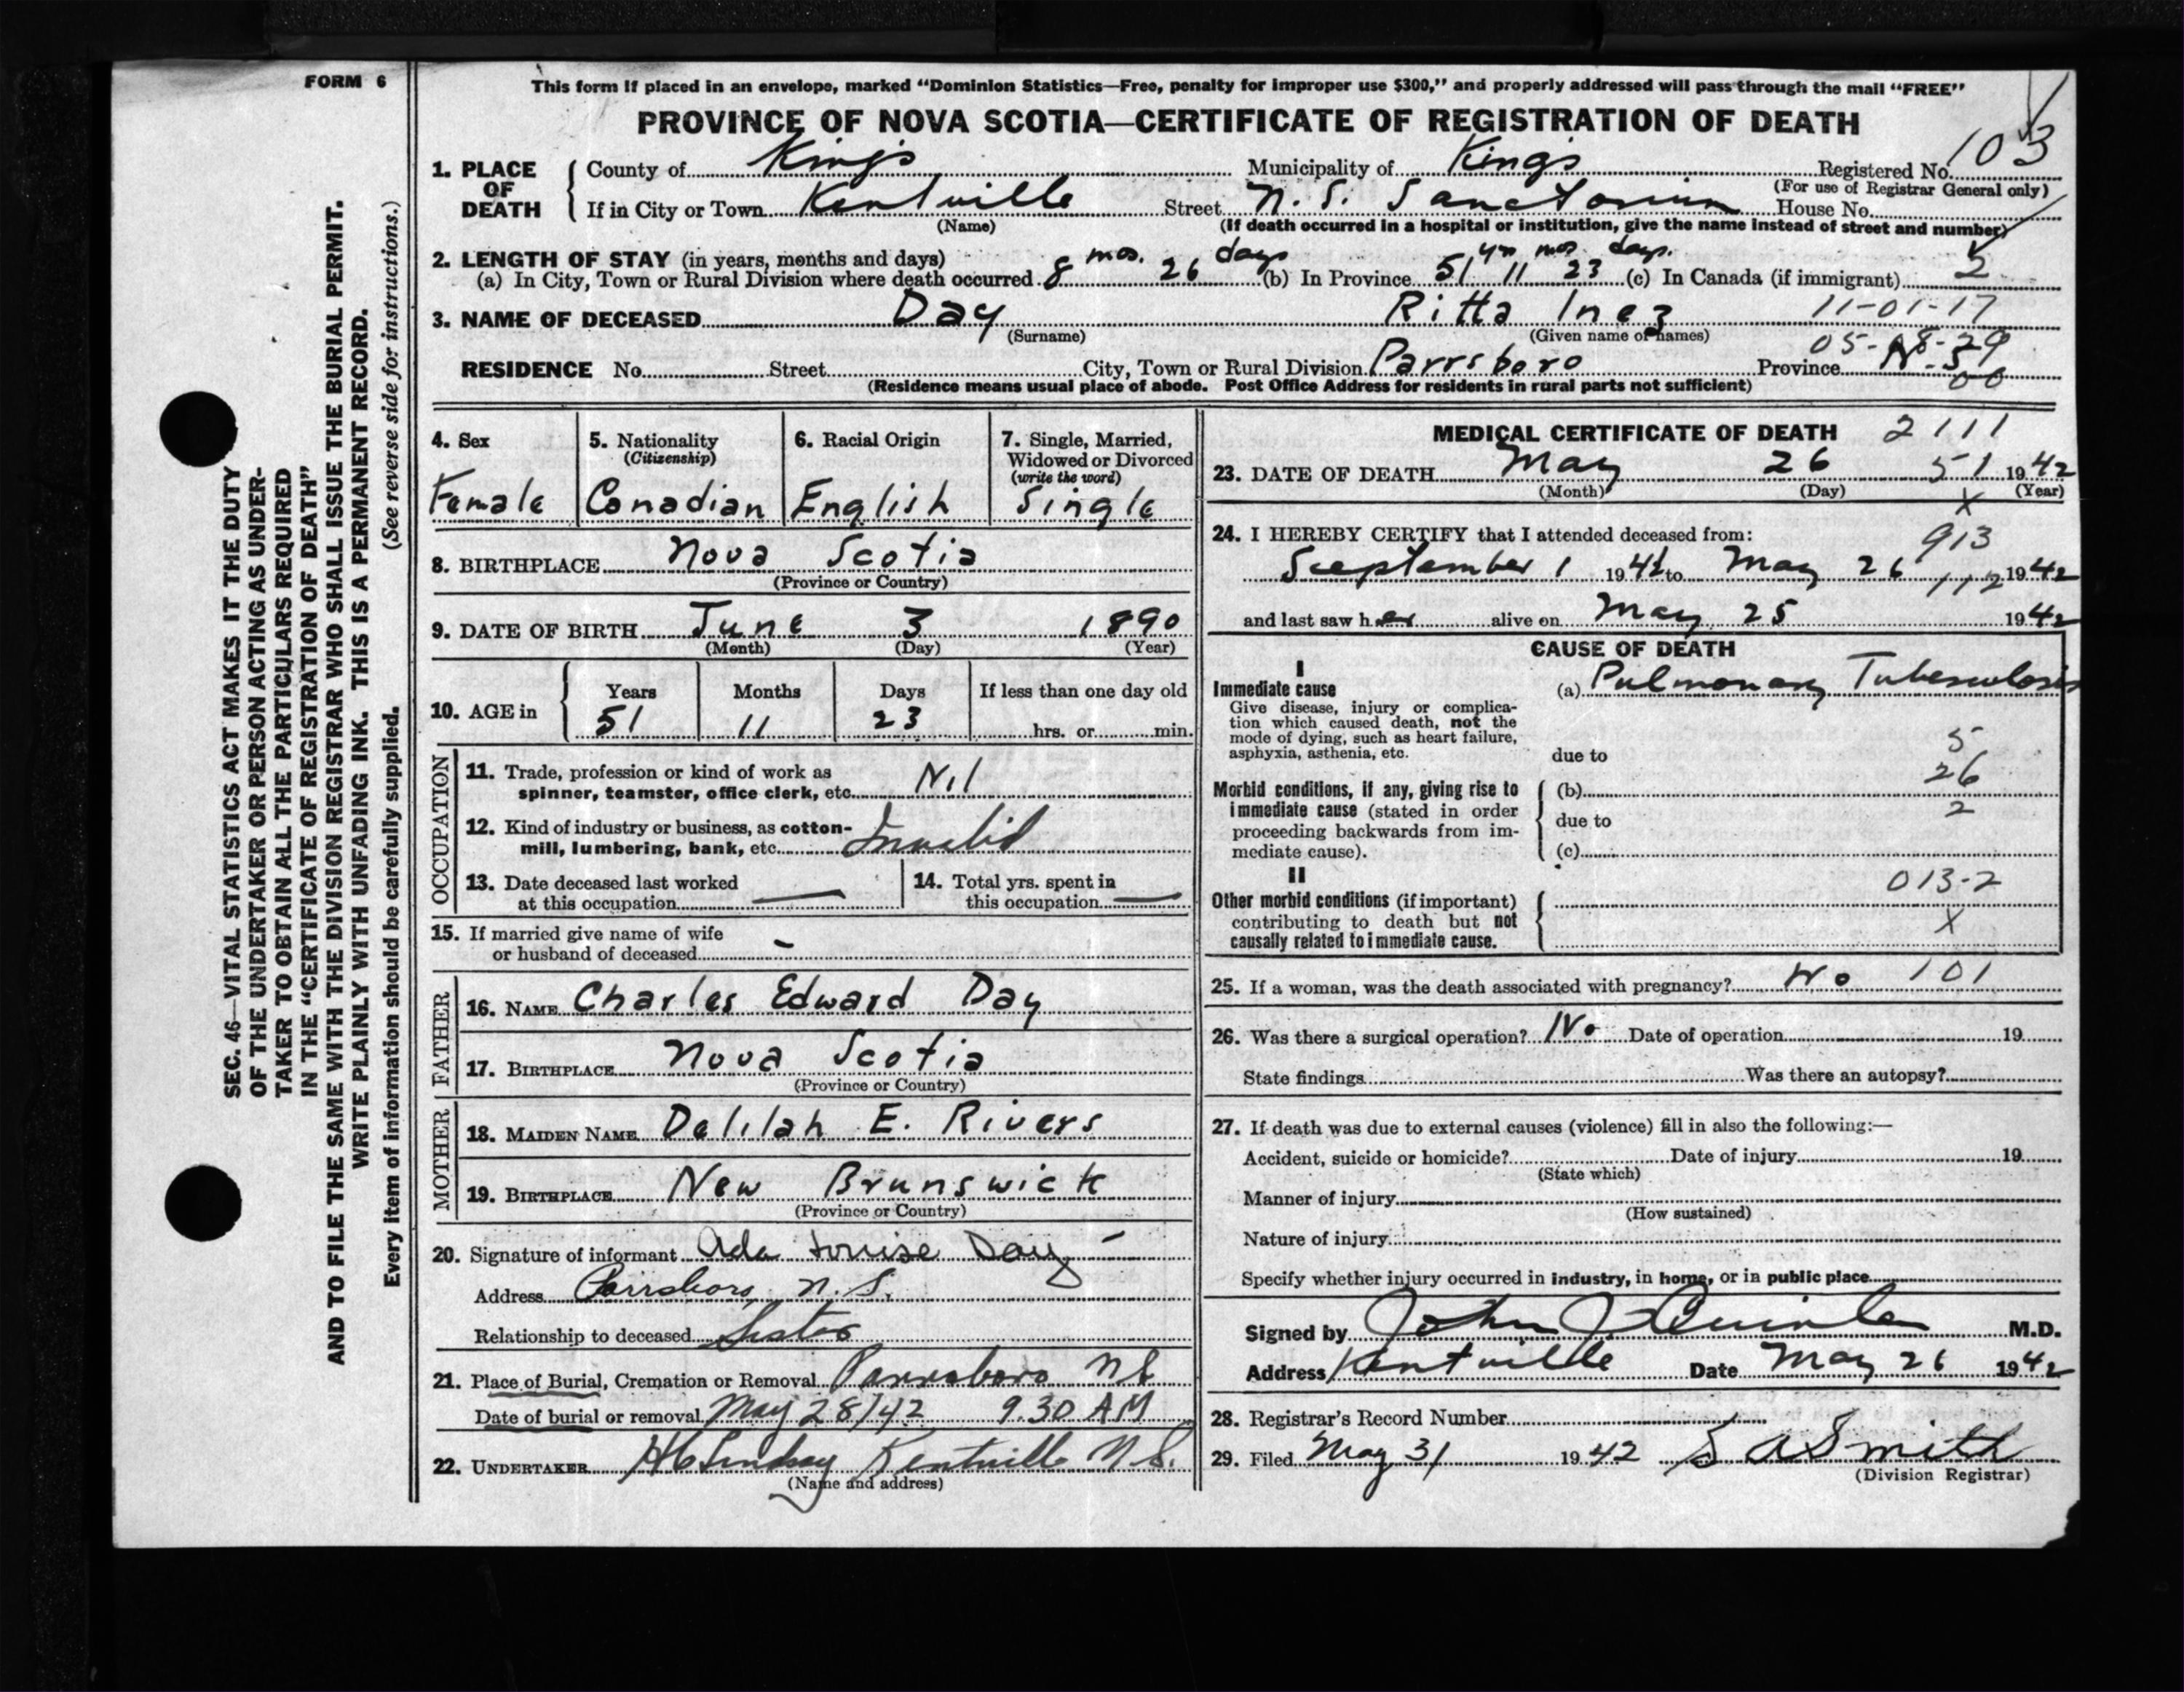 FORM 6
This form if placed in an envelope, marked "Dominion Statistics—Free, penalty for improper use $300," and properly addressed will pass through the mail "FREE"
PROVINCE OF NOVA SCOTIA—CERTIFICATE OF REGISTRATION OF DEATH
1. PLACE OF DEATH County of Kings Municipality of Kings Registered No. 103
(For use of Registrar General only)
If in City or Town Kentville Street N. S. Sanatorium House No.
(Name) (If death occurred in a hospital or institution, give the name instead of street and number)
2. LENGTH OF STAY (in years, months and days)
(a) In City, Town or Rural Division where death occurred 8 mos. 26 days (b) In Province 51 yrs 11 mos 23 days. (c) In Canada (if immigrant)
3. NAME OF DECEASED Day Ritta Inez 11-01-17
(Surname) (Given name or names)
05-08-29
RESIDENCE No. Street City, Town or Rural Division Parrsboro Province N.S.
00
(Residence means usual place of abode. Post Office Address for residents in rural parts not sufficient)
4. Sex
Female
5. Nationality
(Citizenship)
Canadian
6. Racial Origin
English
7. Single, Married,
Widowed or Divorced
(write the word)
Single
8. BIRTHPLACE Nova Scotia
(Province or Country)
9. DATE OF BIRTH June 3 1890
(Month) (Day) (Year)
10. AGE in Years Months Days If less than one day old
51 11 23 hrs. or min.
OCCUPATION
11. Trade, profession or kind of work as
spinner, teamster, office clerk, etc. Nil
12. Kind of industry or business, as cotton-
mill, lumbering, bank, etc. Invalid
13. Date deceased last worked
at this occupation —
14. Total yrs. spent in
this occupation —
15. If married give name of wife
or husband of deceased -
FATHER
16. NAME Charles Edward Day
17. BIRTHPLACE Nova Scotia
(Province or Country)
MOTHER
18. MAIDEN NAME Delilah E. Rivers
19. BIRTHPLACE New Brunswick
(Province or Country)
20. Signature of informant Ada Louise Day
Address Parrsboro, N.S.
Relationship to deceased Sister
21. Place of Burial, Cremation or Removal Parrsboro NS
Date of burial or removal May 28/42 9.30 AM
22. UNDERTAKER Lindsay Kentville N.S.
(Name and address)
MEDICAL CERTIFICATE OF DEATH 2111
23. DATE OF DEATH May 26 51 1942
(Month) (Day) (Year)
X
24. I HEREBY CERTIFY that I attended deceased from:
913
September 1 1941 to May 26 1942
112
and last saw her alive on May 25 1942
CAUSE OF DEATH
I
Immediate cause
Give disease, injury or complica-
tion which caused death, not the
mode of dying, such as heart failure,
asphyxia, asthenia, etc.
(a) Pulmonary Tuberculosis
due to
5
26
Morbid conditions, if any, giving rise to
immediate cause (stated in order
proceeding backwards from im-
mediate cause).
(b)
2
due to
(c)
II
Other morbid conditions (if important)
contributing to death but not
causally related to immediate cause.
013-2
X
25. If a woman, was the death associated with pregnancy? No 101
26. Was there a surgical operation? No Date of operation 19
State findings Was there an autopsy?
27. If death was due to external causes (violence) fill in also the following:—
Accident, suicide or homicide? Date of injury 19
(State which)
Manner of injury
(How sustained)
Nature of injury
Specify whether injury occurred in industry, in home, or in public place
Signed by John J Quinlan M.D.
Address Kentville Date May 26 1942
28. Registrar's Record Number
29. Filed May 31 1942 S A Smith
(Division Registrar)
SEC. 46—VITAL STATISTICS ACT MAKES IT THE DUTY
OF THE UNDERTAKER OR PERSON ACTING AS UNDER-
TAKER TO OBTAIN ALL THE PARTICULARS REQUIRED
IN THE "CERTIFICATE OF REGISTRATION OF DEATH"
AND TO FILE THE SAME WITH THE DIVISION REGISTRAR WHO SHALL ISSUE THE BURIAL PERMIT.
WRITE PLAINLY WITH UNFADING INK. THIS IS A PERMANENT RECORD.
Every item of information should be carefully supplied. (See reverse side for instructions.)